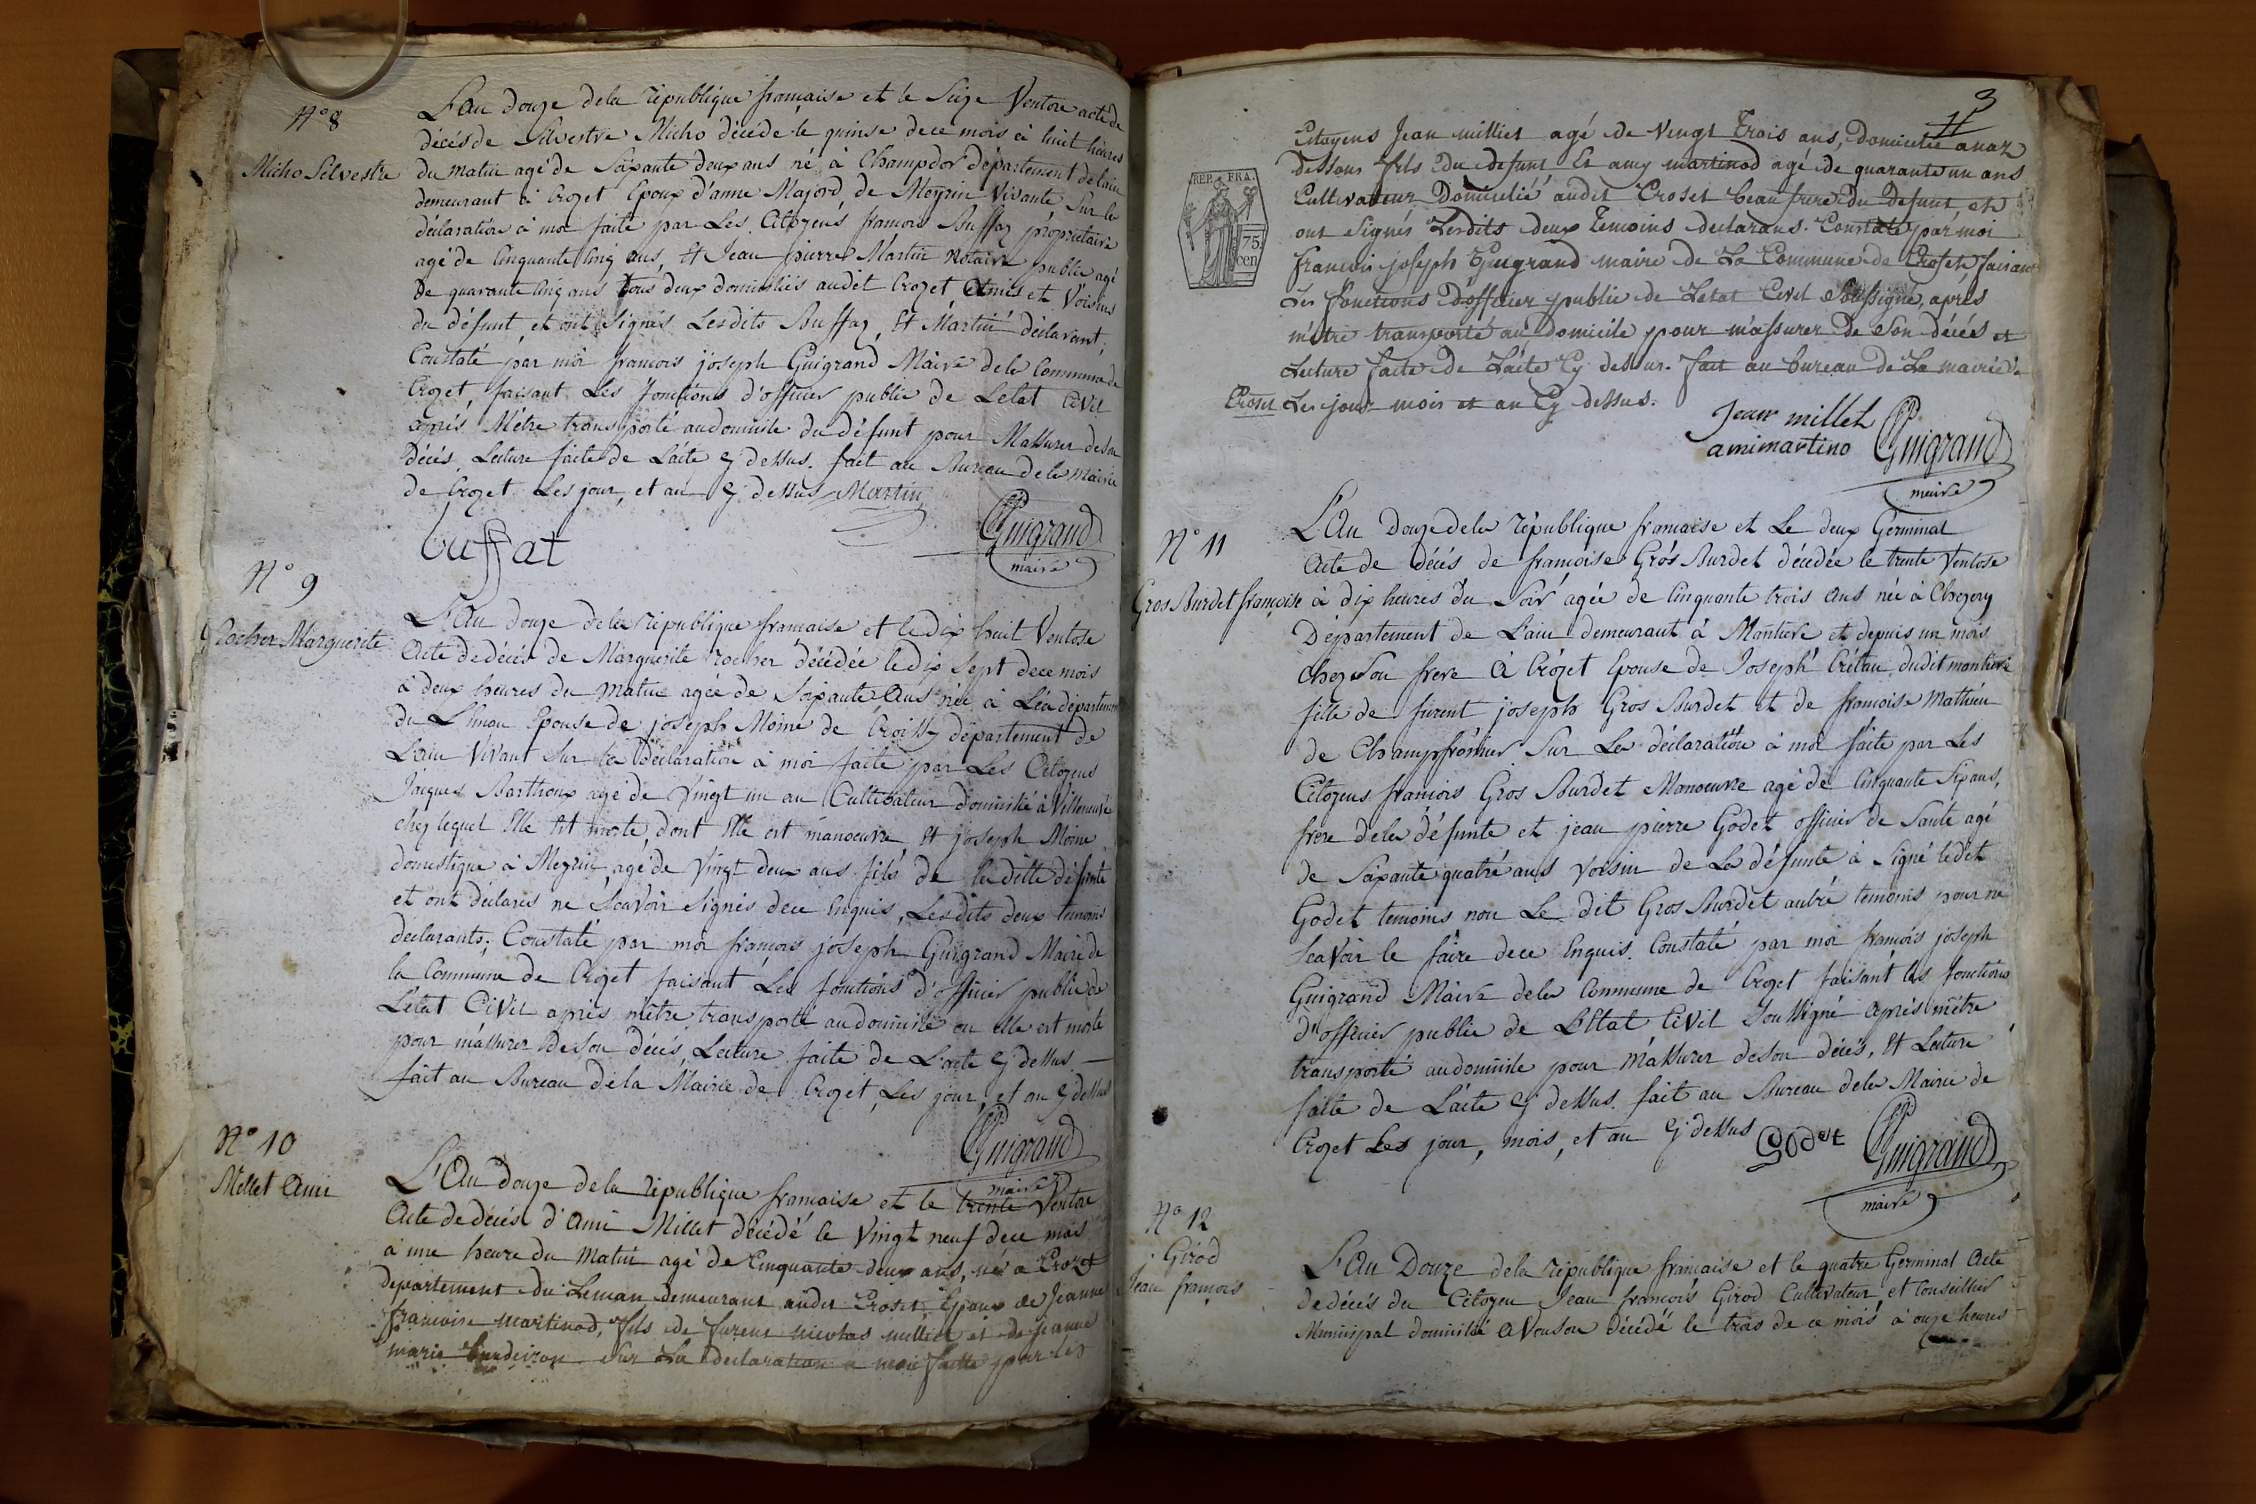 N° 8
Micho Silvestre
L'An douze dela république francaise et le Seize Ventose acte de
décés de Silvestre Micho décédé le quinse de ce mois à huit heures
du matin agé de Soixante deux ans né à Champdor département de lain
demeurant à Crozet Epoux d'anne Majord de Meyrin Vivante Sur la
déclaration à moi faite par Les Citoyens francois Buffaz propriétaire
agé de Cinquante Cinq ans, Et Jean pierre Martin Notaire public agé
De quarante Cinq ans tous deux domiciliés audit Crozet Amis et Voisins
du défunt et ont Signés Lesdits Buffaz, Et Martin déclarant,
Constaté par moi francois joseph Guigrand Maire dela Commune de
Crozet, faisant Les fonctions d'officier public de Letat Civil
aprés M'étre transporté audomicile du défunt pour Massurer de Son
Décés, Lecture faite de Lácte Cy dessus. fait au Bureau dela mairie
de Crozet Les jour, et an Cy dessus Martin
buffat
Guigrand
maire
N° 9
Rocher Marguerite
L'An douze dela république francaise et le dix huit Ventose
Acte de décés de Marguerite Rocher décédée le dix Sept de ce mois
à deux heures du matin agée de Soixante Ans née à Léa département
du Léman Epouse de joseph Moine de Croissy département de
Lain Vivant Sur la Déclaration à moi faite par Les Citoyens
Jaques Barthoux agé de Vingt un an Cultivateur domicilié à Villeneuve
chez lequel Elle Est morte, dont Elle est manoeuvre, Et joseph Moine
domestique à Meyrin, agé de Vingt deux ans fils de la ditte défunte
et ont déclarés ne Scavoir Signés dece Enquis, Lesdits deux temoins
déclarants; Constaté par moi francois joseph Guigrand Maire de
la Commune de Crozet faisant Les fonctions d'officier public de
Létat Civil aprés métre transporté audomicile ou elle est morte
pour mássurer de Son décés, Lecture faite de L'acte Cy dessus
fait au Bureau de la Mairie de Crozet, Les jour, et an Cy dessus
Guigrand
maire
N° 10
Millet Ami
L'An douze dela république francaise et le trente Ventose
Acte de décés d'Ami Millet décédé le Vingt neuf dece mois
à une heure du matin agé de Cinquante deux ans, né a Crozet
département du Leman demeurant audit Croset Epoux de Jeanne
francoise martinod, fils de furent nicolas milliet et de jeanne
marie Sur La declaration a moi faitte par les
3
Citoyens Jean milliet agé de Vingt Trois ans, Domicilié anaz
dessous fils du defunt Et amy martinod agé de quarante un ans
Cultivateur Domicilié audit Croset beau frere du Defunt et
ont Signés Lesdits deux Temoins declarans. Constaté par moi
francois joseph Guigrand maire de La Commune de Croset, faisant
Les fonctions D'officier public de Letat Civil Soussigné, aprés
métre transporté au Domicile pour m'assurer de Son décés et
Lecture faite de Lácte Cy dessus. fait au bureau de La mairie de
Croset Les jour mois et an Cy dessus.
REP. FRA.
75
cen
Jean millet
amimartino
Guigrand
maire
N° 11
Gros Burdet françoise
L'An Douze dela république francaise et Le deux Germinal
Acte de décés de francoise Gros Burdet décédée le trente Ventose
à dix heures du Soir agée de Cinquante trois Ans née à Chezery
Département de Lain demeurant à Mantiere et depuis un mois
chez Son frere à Crozet Epouse de Joseph Crétan dudit mantiere
fille de furent joseph Gros Burdet et de francoise Mathieu
de Champfromier Sur La déclaration à moi faite par Les
Citoyens francois Gros Burdet Manoeuvre agé de Cinquante Six ans,
frere dela défunte et jean pierre Godet officier de Santé agé
de Soixante quatre ans Voisin de La défunte à Signé ledit
Godet temoins non Le dit Gros Burdet autre temoins pour ne
Scavoir le faire dece Enquis. Constaté par moi francois joseph
Guigrand Maire dela Commune de Crozet faisant les fonctions
d'officier public de L'Etat Civil Soussigné Aprés métre
transporté audomicile pour Mássurer de Son décés, Et Lecture
faite de Lácte Cy dessus. fait au Bureau dela Mairie de
Crozet Les jour, mois, et an Cy dessus
Godet
Guigrand
maire
N° 12
Girod
Jean françois
L'An Douze dela république francaise et le quatre Germinal Acte
de décés du Citoyen Jean francois Girod Cultivateur et Conseiller
Municipal domicilié a Vouson décédé le trois de ce mois à onze heures